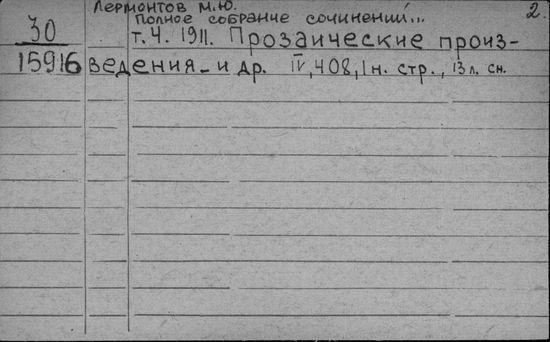 Лермонтов М.Ю. 2.
Полное собрание сочинений...
30 т. 4. 1911. Прозаические произ-
15916 ведения и др. IV, 408, 1 н. стр., 13 л. сн.